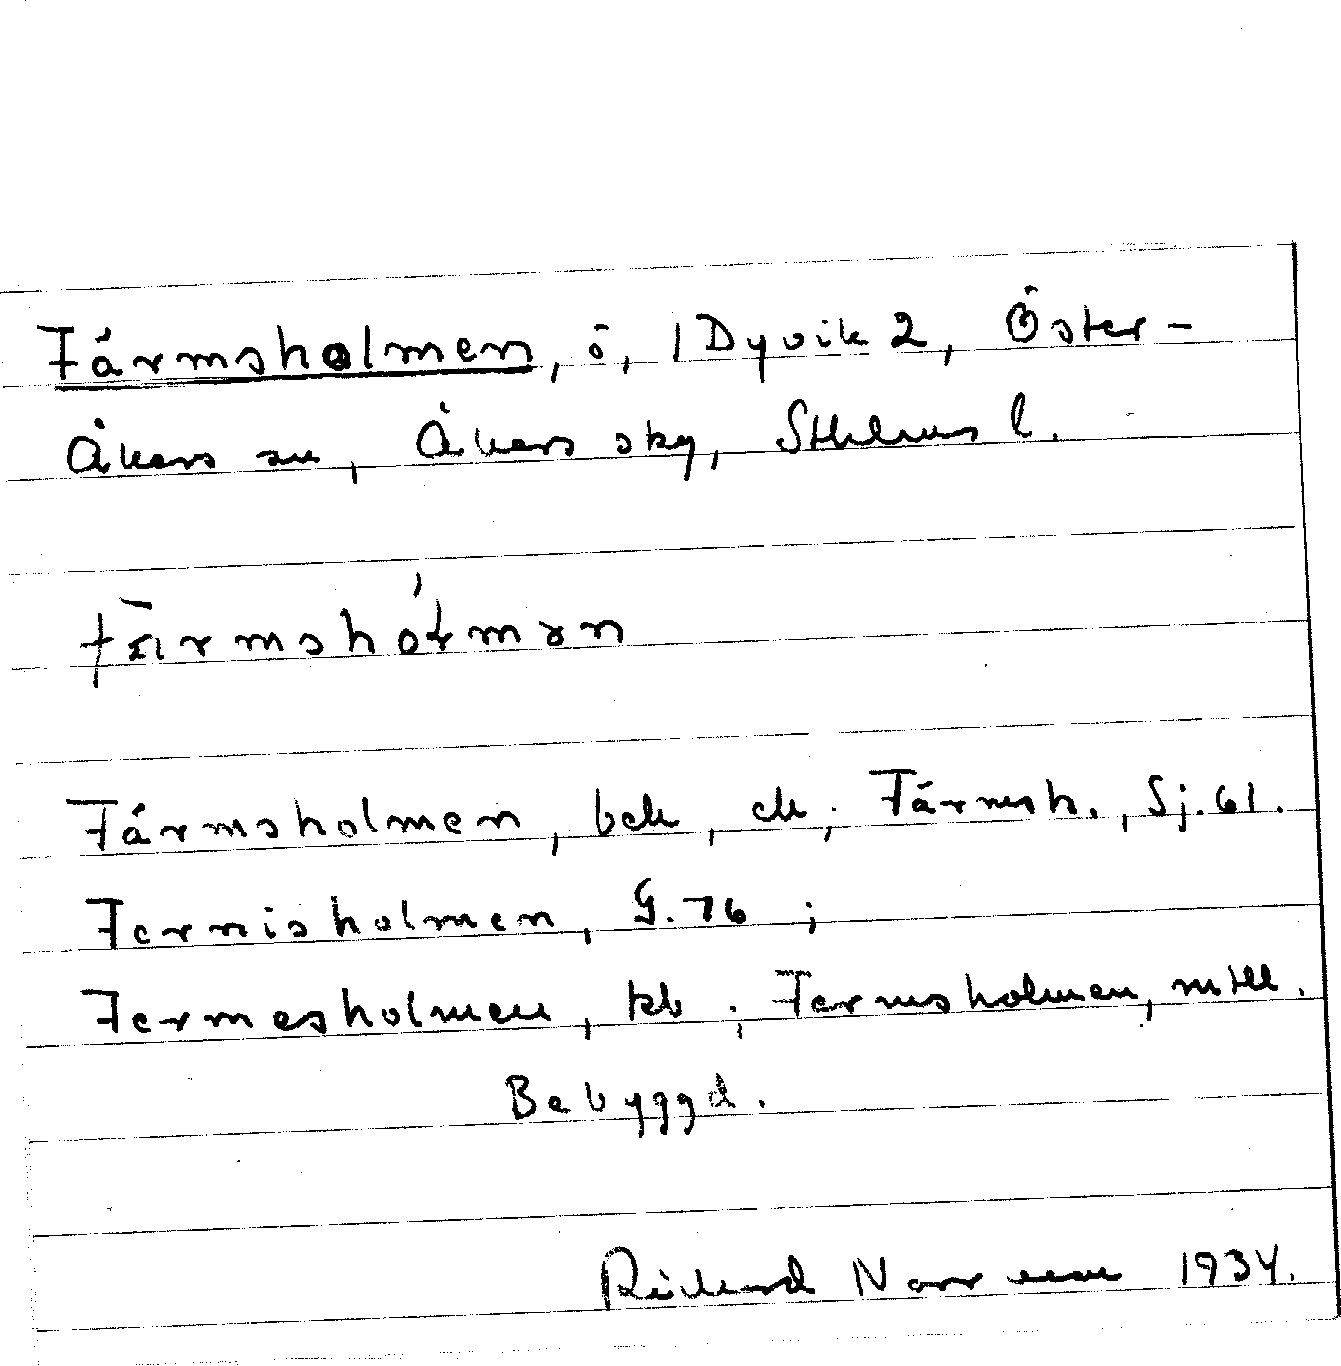 Färmsholmen, ö, 1 Dyvik 2, Öster-
Åkers sn, Åkers skg, Sthlms l.
Färmsholmen, bck, ck; Färmsh., Sj. 61.
Fernisholmen, G. 76;
Fermesholmen, kb; Fermsholmen, mtll.
Bebyggd.
Rickard Norrman 1934.